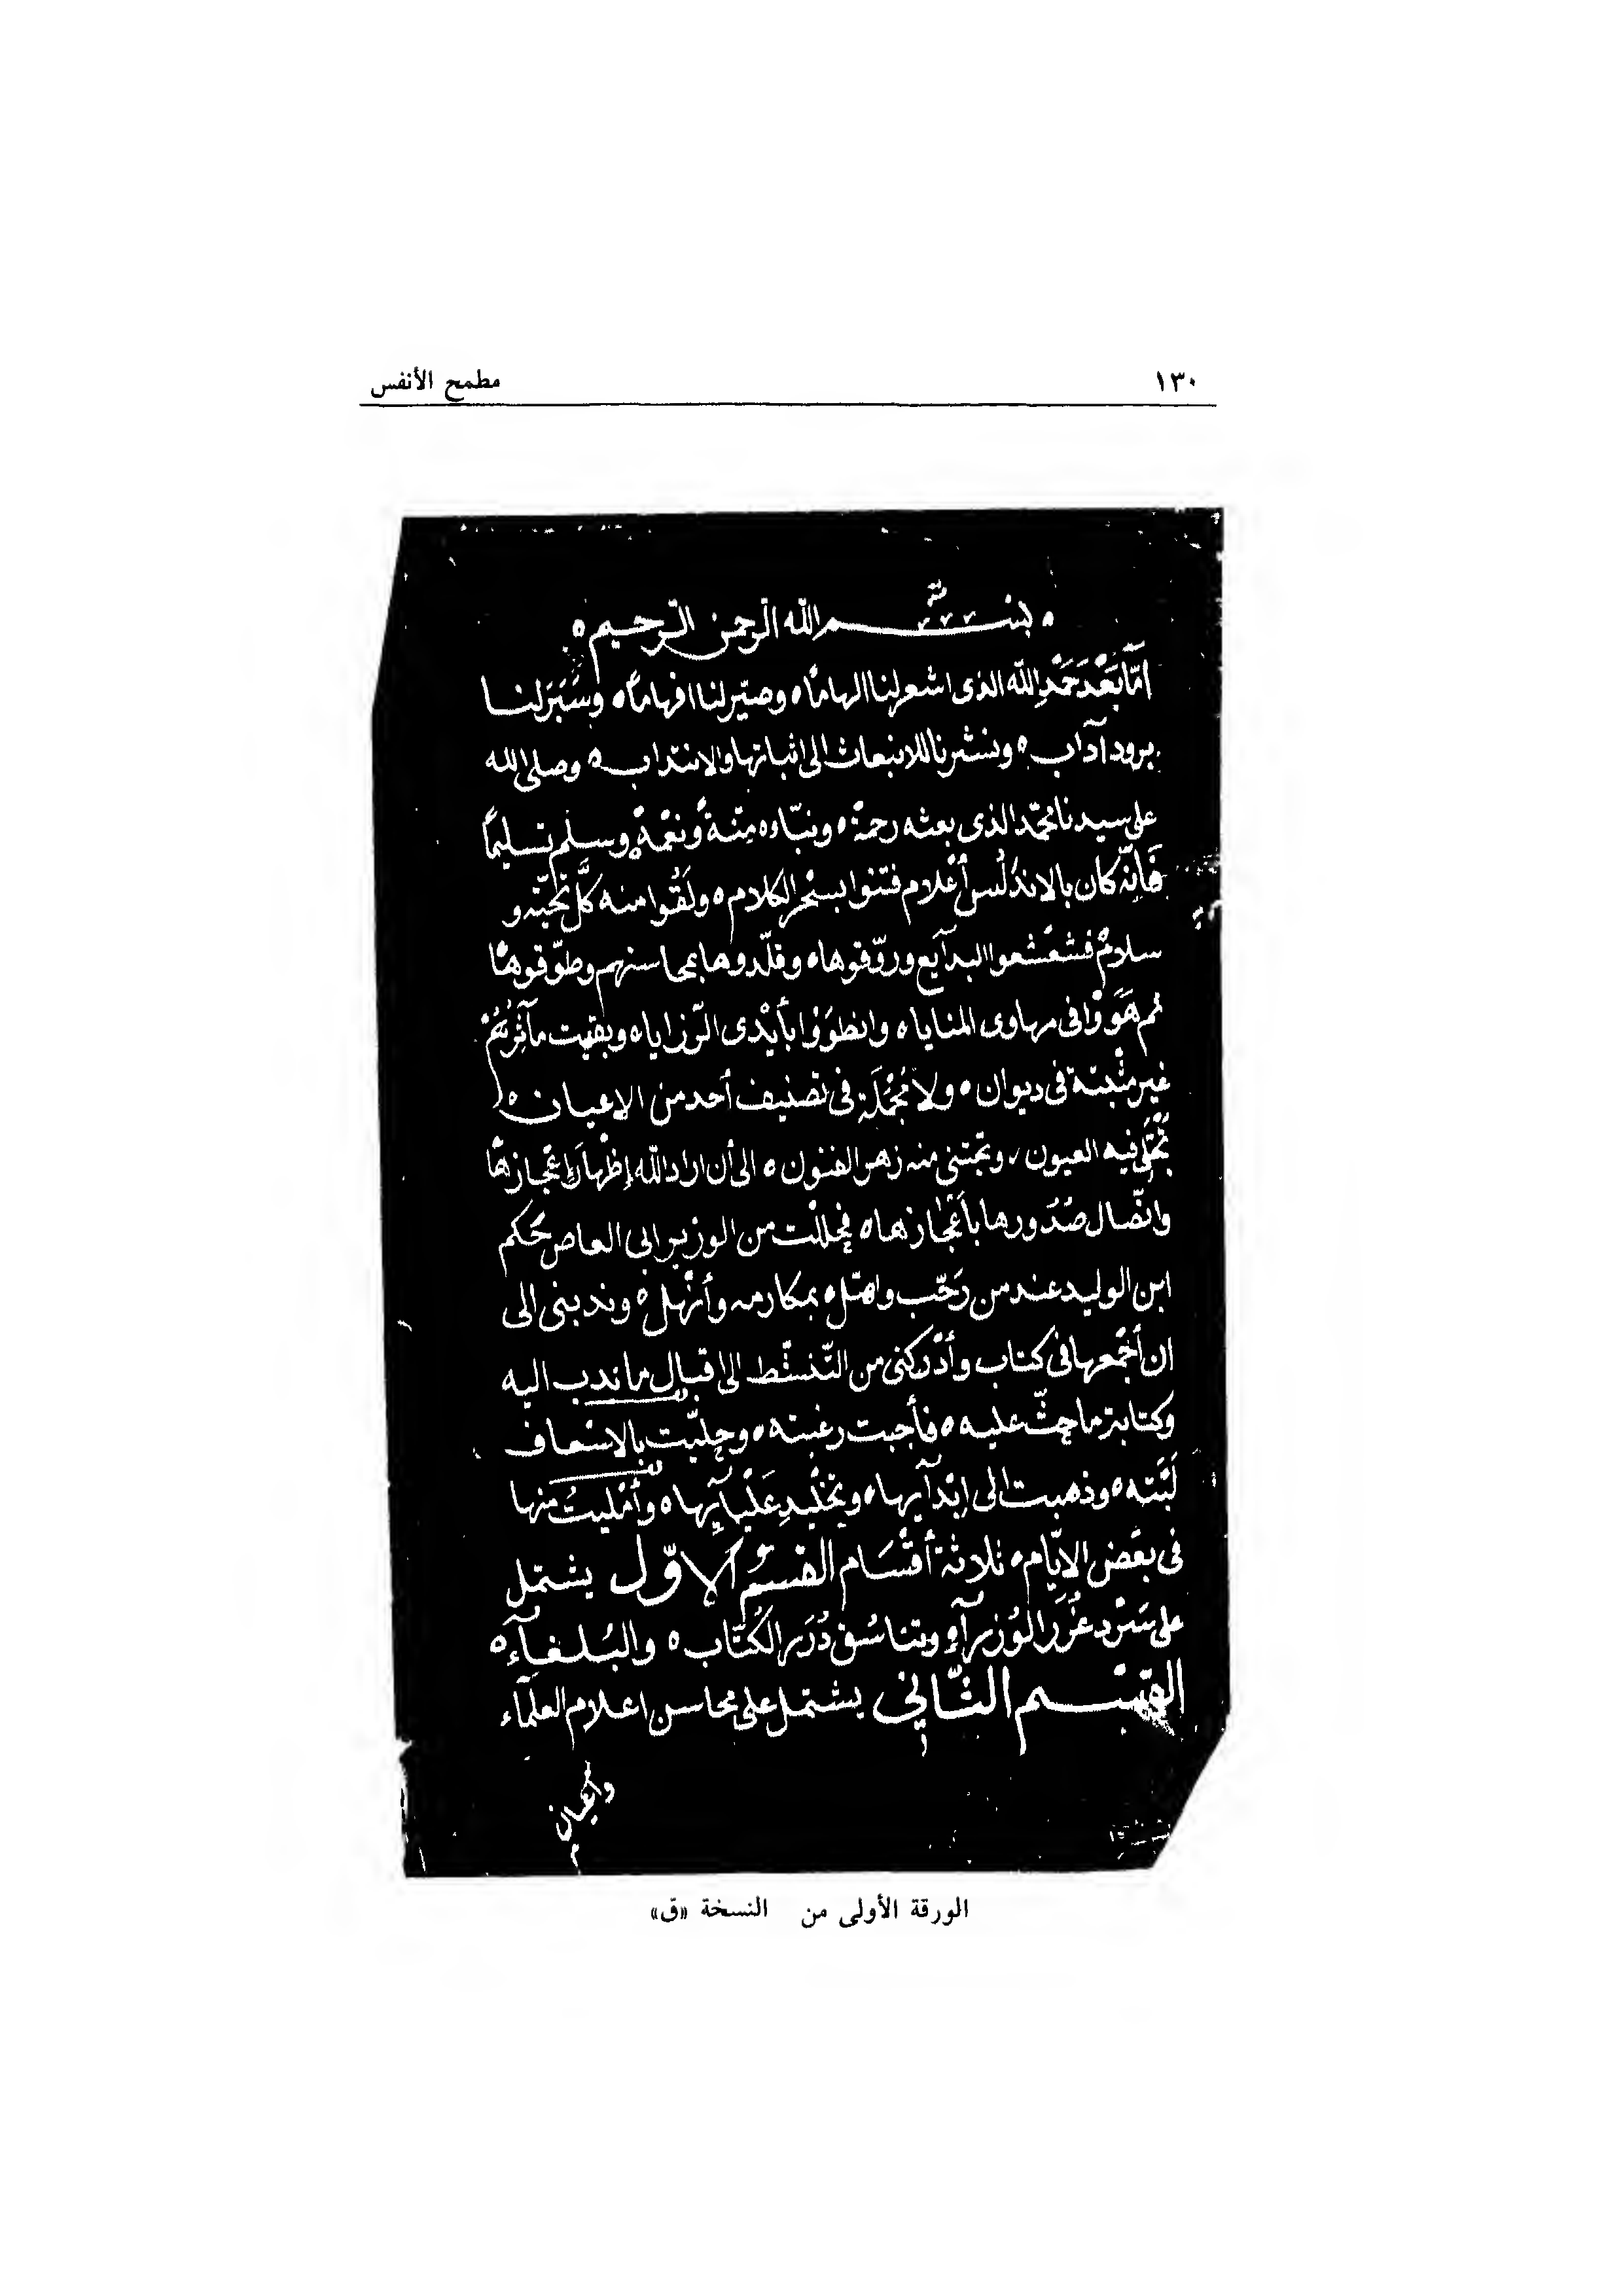 ١٣٠ مطمح الأنفس
بسم الله الرحمن الرحيم
أمّا بَعْدَ حَمْدِ الله الذى اشعر لنا الهامًا ه وصيّر لنا افهامًا ه وسَيَّر لنا
برود آداب ه ونشرنا للانبعاث الى اثباتها والانتداب ه وصلى الله
على سيدنا محمّد الذى بعثه رحمة ه ونبّاءه مِنّةً ونِعْمةً وسلم تسليمًا
فإنّه كان بالاندلُس أعْلام فتنوا بسحْر الكلام ه ولَقُوا منه كلَّ تحيّة و
سلام فشعْشعوا البدآيع وروّقوها ه وقلّدوها بمحاسنهم وطوّقوها
ثم هَوَوْا فى مهاوى المنايا ه وانطوَوْا بأيْدى الرّزايا ه وبقيت مآثرُهُمْ
غير مثْبتة فى ديوان ه ولا مُجْمَلَة فى تصنيف أحد من الاعيان ه
تَجْتلى فيه العيون ، وتجتنى منه زهر الفنون ه الى أن اراد الله إظْهارَ إعْجازها
واتّصال صُدُورها بأعْجازها ه فحللْت من الوزير ابى العاص حَكم
ابن الوليد عند من رَحّب واهّل ه بمكارمه وأنْهل ه وندبنى الى
ان أجْمعها فى كتاب وأدْركنى من التّنشّط الى اقبال ما ندب اليه
وكتابة ما حثّ عليه ه فأجبت رغبته ه وحليّت بالاسْعاف
لَبّته ه وذهبت الى إبْدآيها ه وتخْليدِ عَلْيآيِها ه وأمْليتُ منها
فى بعَض الايّام ه ثلاثة أقْسَام القسْمُ الاوّل يشتمل
على سَرْد غُرَر الوُزرآء وتناسُق دُرَر الكُتّاب ه والبُلغآء ه
القِسْم الثّانِى يشتمل على محاسن اعلام العلمآء
وأعيان
الورقة الأولى من النسخة «ق»